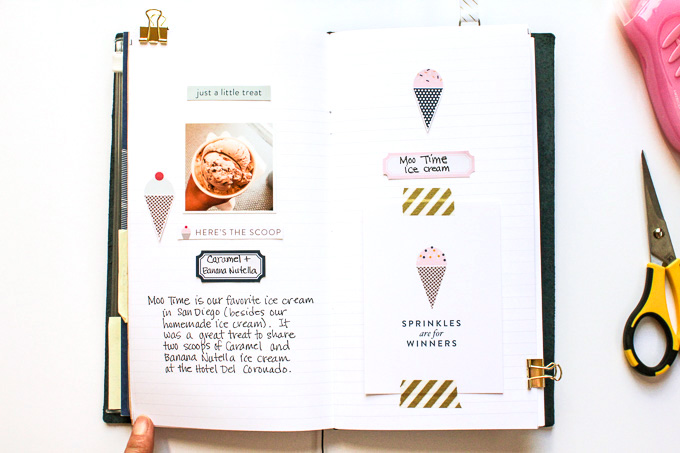 just a little treat
HERE'S THE SCOOP
Caramel +
Banana Nutella
Moo Time is our favorite ice cream
in San Diego (besides our
homemade ice cream). It
was a great treat to share
two scoops of Caramel and
Banana Nutella ice cream
at the Hotel Del Coronado.
Moo Time
ice cream
SPRINKLES
are for
WINNERS